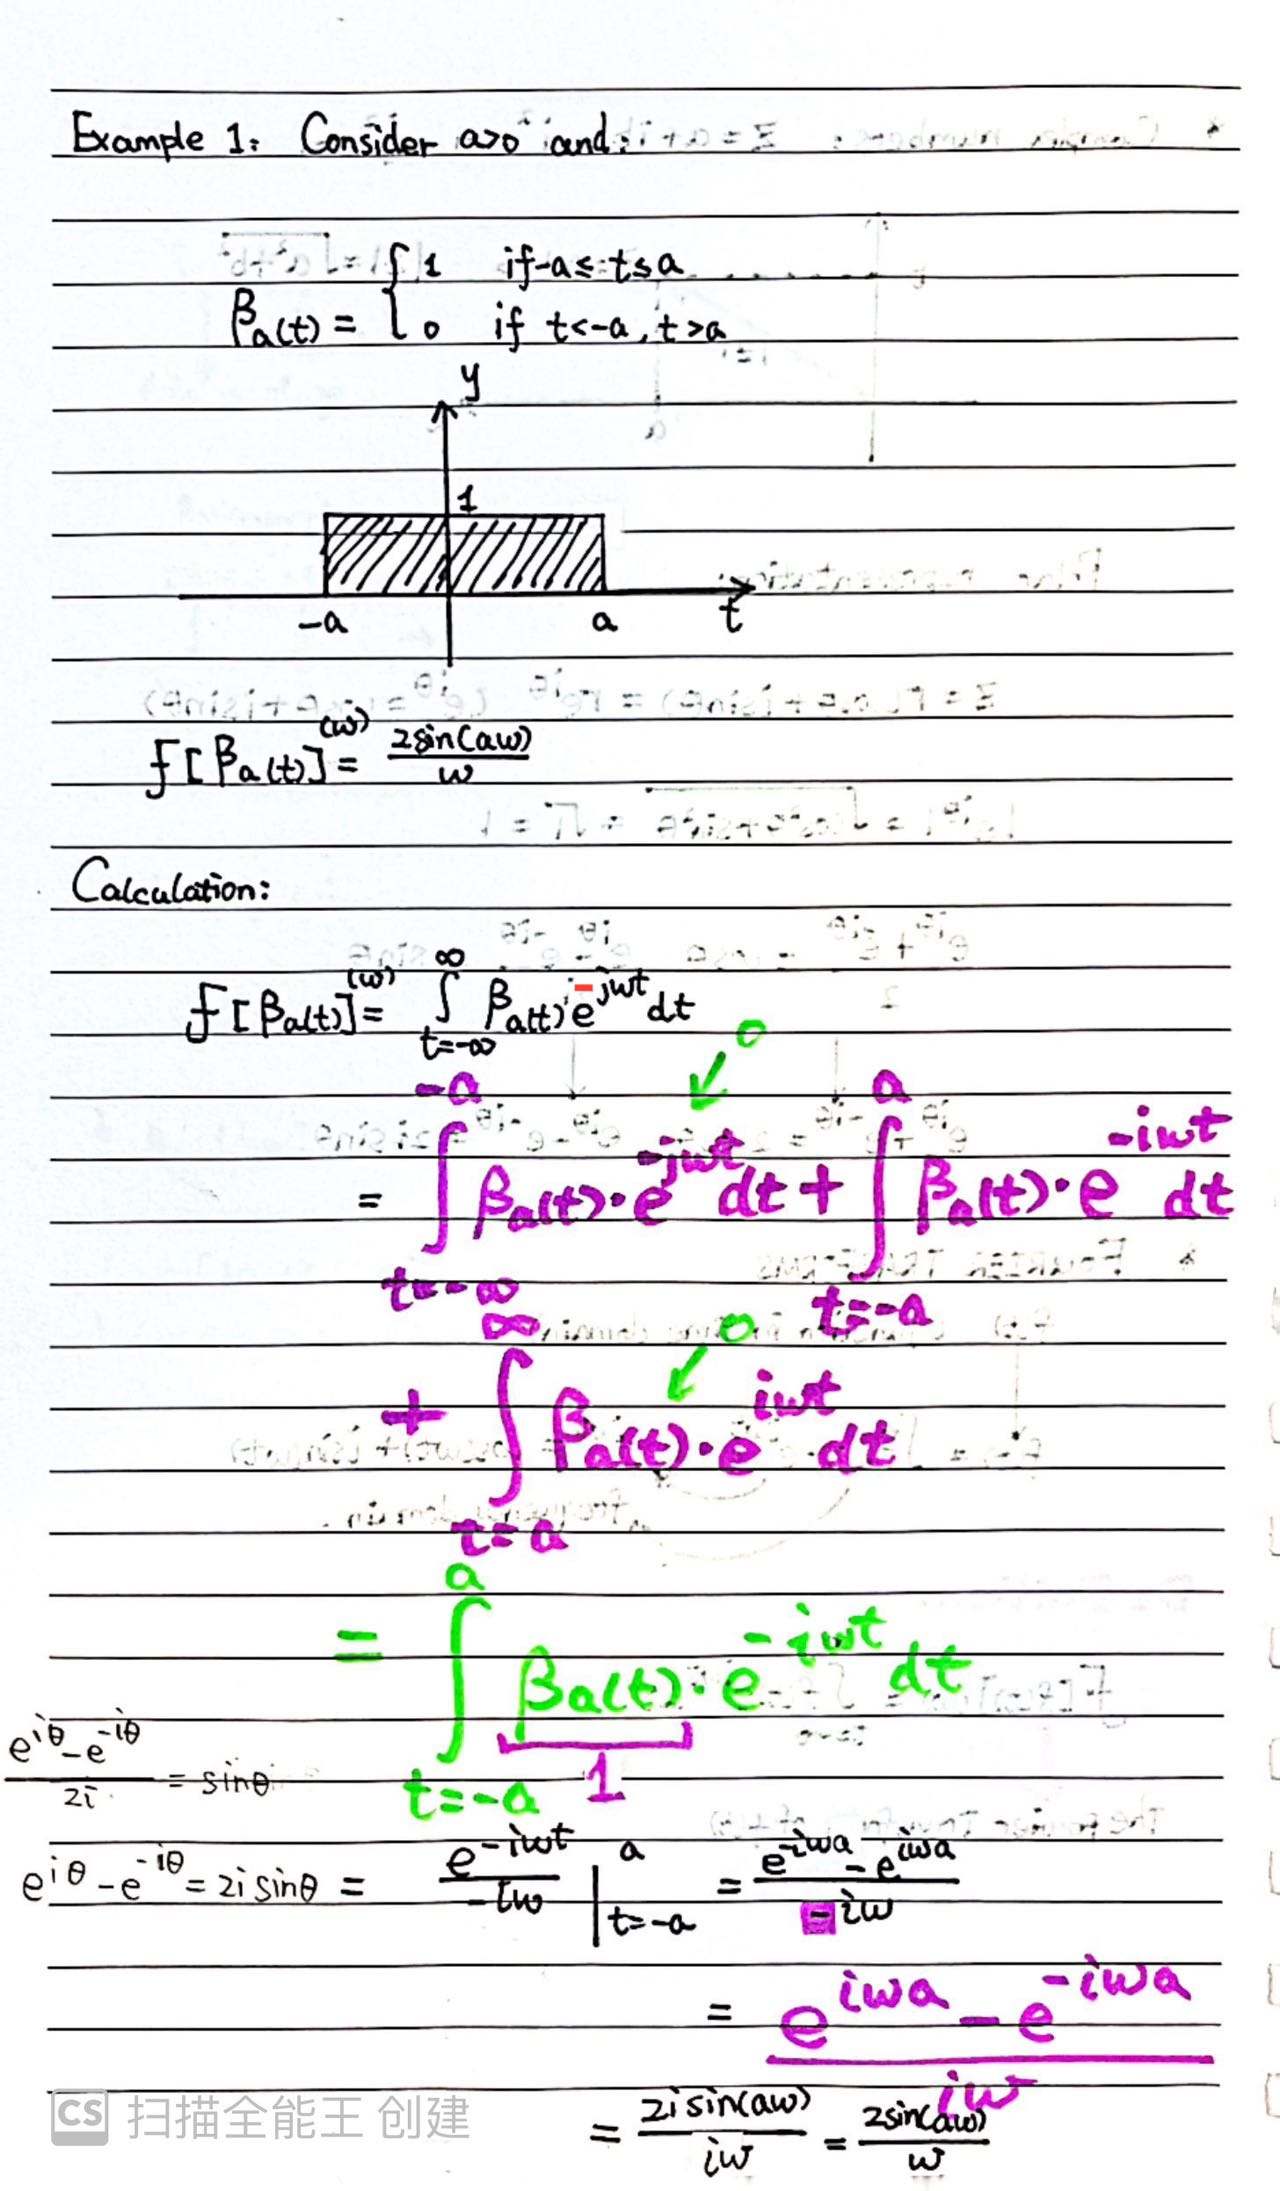 Example 1: Consider a>0 and:
β_a(t) = { 1 if -a ≤ t ≤ a
0 if t<-a, t>a
y
1
-a a t
F[β_a(t)](ω) = 2sin(aω)/ω
Calculation:
F[β_a(t)](ω) = ∫_{t=-∞}^{∞} β_a(t) e^{-jωt} dt
0
= ∫_{t=-∞}^{-a} β_a(t)·e^{-jωt} dt + ∫_{t=-a}^{a} β_a(t)·e^{-iωt} dt
0
+ ∫_{t=a}^{∞} β_a(t)·e^{iωt} dt
= ∫_{t=-a}^{a} β_a(t)·e^{-iωt} dt
1
(e^{iθ} - e^{-iθ})/2i = sinθ
e^{iθ} - e^{-iθ} = 2i sinθ
= e^{-iωt}/-iω |_{t=-a}^{a} = (e^{-iωa} - e^{iωa})/-iω
= (e^{iωa} - e^{-iωa})/iω
= 2i sin(aω)/iω = 2sin(aω)/ω
CS 扫描全能王 创建